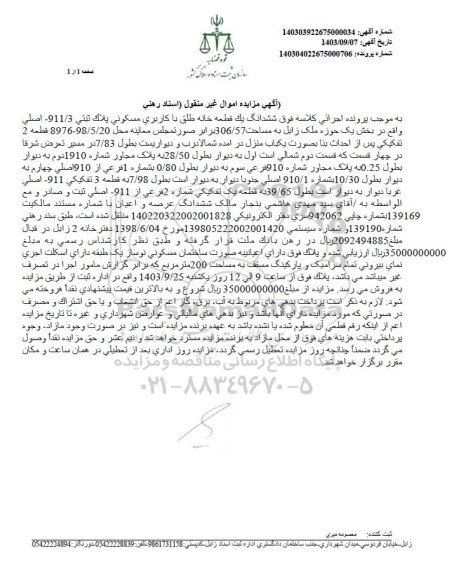 شماره آگهی: 140303922675000034
تاریخ آگهی: 1403/09/07
شماره پرونده: 140304022675000706
قوه قضائیه
سازمان ثبت اسناد و املاک کشور
صفحه 1 از 1
(آگهي مزايده اموال غير منقول (اسناد رهني
به موجب پرونده اجرائي کلاسه فوق ششدانگ يك قطعه خانه طلق با کاربري مسکوني پلاك ثبتي 911/3- اصلي
واقع در بخش يک حوزه ملک زابل به مساحت306/57برابر صورتمجلس معاينه محل 98/5/20-8976 قطعه 2
تفکيکي پس از احداث بنا بصورت يکباب منزل در آمده شمالا:درب و ديواريست بطول 7/83در مسير تعرض شرقا
در چهار قسمت که قسمت دوم شمالي است اول به ديوار بطول 28/50به پلاک مجاور شماره 1910دوم به ديوار
بطول 0.25به پلاک مجاور شماره 910فرعي سوم به ديوار بطول 0/80 بشماره 1فرعي از 910اصلي چهارم به
ديوار بطول 10/30بشماره 910/1 اصلي جنوبا ديوار به ديوار است بطول 7/98به قطعه 3 تفکيکي 911- اصلي
غربا ديوار به ديوار است بطول 39/65به قطعه يک تفکيکي شماره 2فرعي از 911- اصلي ثبت و صادر و مع
الواسطه به /آقاي سيد مهدي هاشمي بنجار مالک ششدانگ عرصه و اعيان با شماره مستند مالکيت
139169بشماره چاپي 942062سري دفتر الکترونيکي 140220322002001828 منتقل شده است، طبق سند رهني
شماره139190و شماره سيستمي 139805222002001420مورخ 1398/6/04 دفترخانه 2 زابل در قبال
مبلغ2092494885ريال در رهن بانك ملت قرار گرفته و طبق نظر كارشناس رسمي به مبلغ
35000000000ريال ارزيابي شده و پلاک فوق داراي اعيانيه صورت ساختمان مسکوني نوساز يک طبقه داراي اسکلت آجري
نماي بيروني تمام سراميک و پارکينگ مسقف به مساحت 200مترمربع که برابر گزارش مامور اجرا در تصرف
غير ميباشد مي باشد، پلاك فوق از ساعت 9 الي 12 روز يکشنبه 1403/9/25 در اداره ثبت از طريق مزايده
به فروش مي رسد. مزايده از مبلغ35000000000 ريال شروع و به بالاترين قيمت پيشنهادي نقداً فروخته مي
شود. لازم به ذكر است پرداخت بدهي هاي مربوط به آب، برق، گاز اعم از حق انشعاب و يا حق اشتراك و مصرف
در صورتي كه مورد مزايده داراي آنها باشد و نيز بدهي هاي مالياتي و عوارض شهرداري و غيره تا تاريخ مزايده
اعم از اينكه رقم قطعي آن معلوم شده يا نشده باشد به عهده برنده مزايده است و نيز در صورت وجود مازاد، وجوه
پرداختي بابت هزينه هاي فوق از محل مازاد به برنده مزايده مسترد خواهد شد و نيم عشر و حق مزايده نقداً وصول
مي گردد ضمناً چنانچه روز مزايده تعطيل رسمي گردد، مزايده روز اداري بعد از تعطيلي در همان ساعت و مكان
مقرر برگزار خواهد شد.
۰۲۱-۸۸۳۴۹۶۷۰-۵
ثبت کننده: معصومه ميري
زابل،خيابان فردوسي،ميدان شهرداري،جنب ساختمان دادگستري اداره ثبت اسناد زابل،کدپستي:9861731158،تلفن:05422228839،دورنگار:05422224894